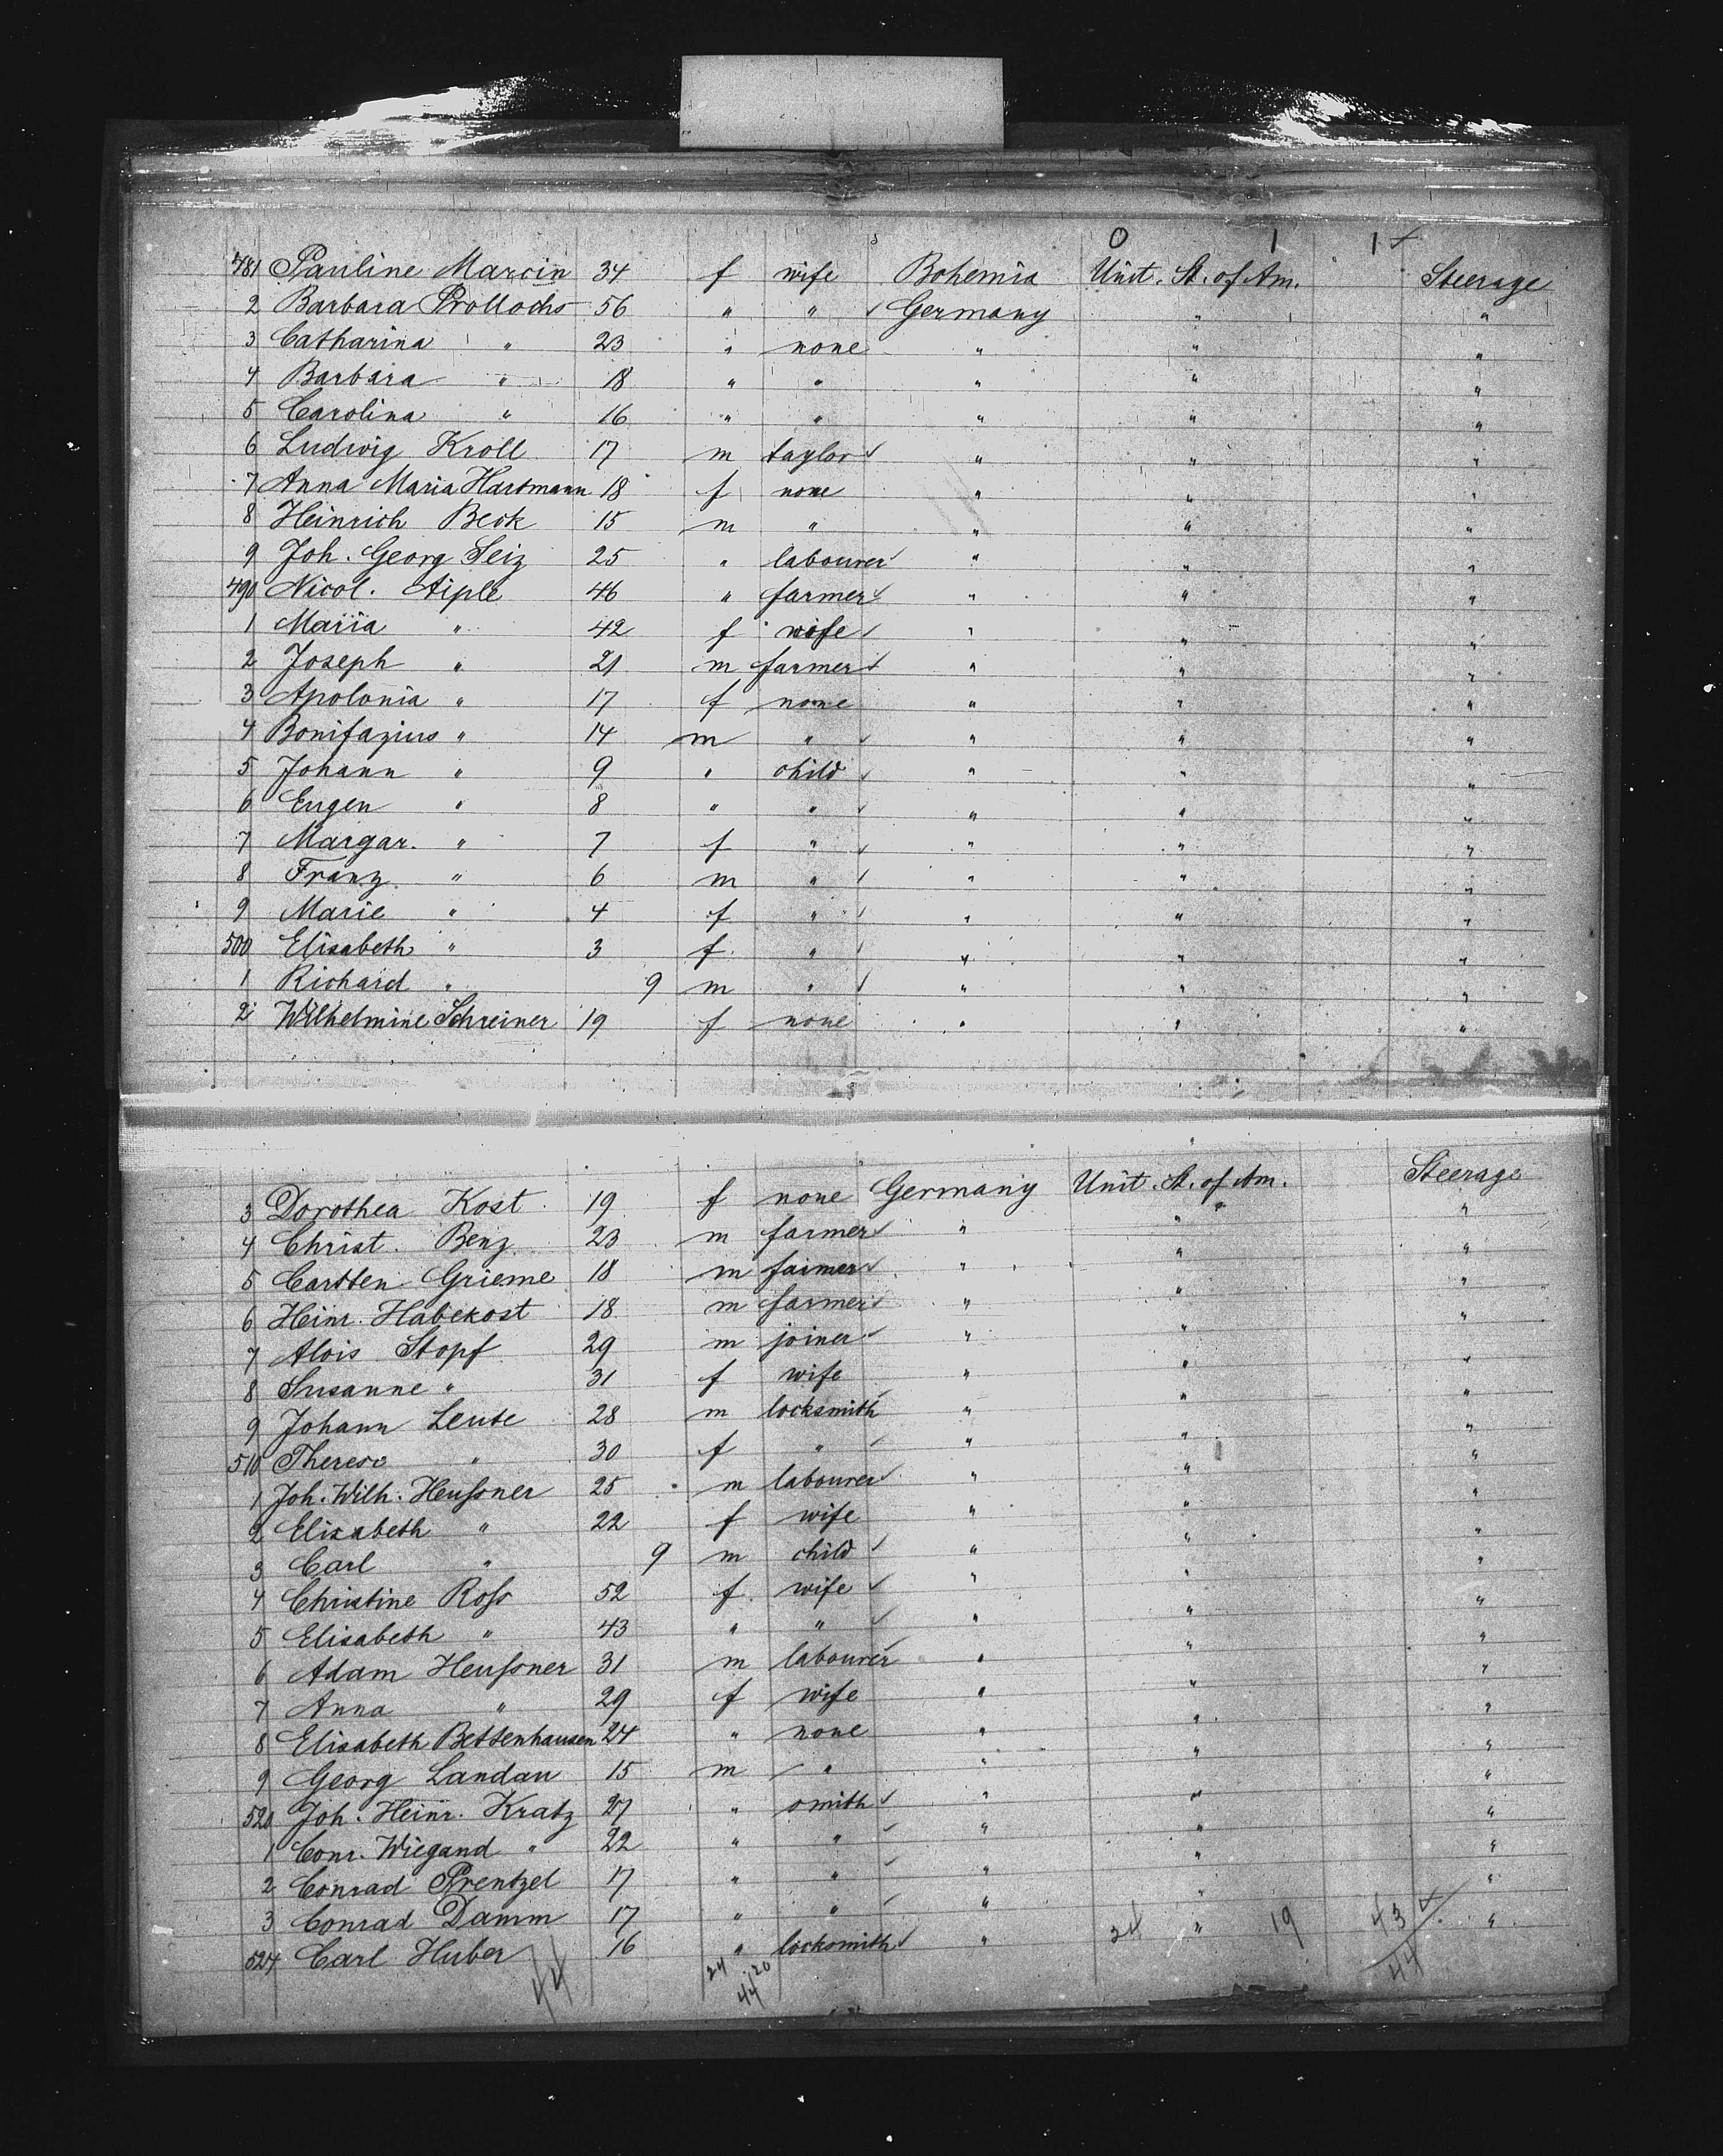 0 1 1 +
481 Pauline Marcin 34 f wife Bohemia Unit. St. of Am. Steerage
2 Barbara Prollochs 56 " " ✓ Germany " "
3 Catharina " 23 " none " " "
4 Barbara " 18 " " " " "
5 Carolina " 16 " " " " "
6 Ludwig Kroll 17 m taylor ✓ " " "
7 Anna Maria Hartmann 18 f none " " "
8 Heinrich Beck 15 m " " " "
9 Joh. Georg Seiz 25 " labourer ✓ " " "
490 Nicol. Aiple 46 " farmer ✓ " " "
1 Maria " 42 f wife ✓ " " "
2 Joseph " 21 m farmer ✓ " " "
3 Apolonia " 17 f none " " "
4 Bonifazius " 14 m " ✓ " " "
5 Johann " 9 " child ✓ " " "
6 Eugen " 8 " " ✓ " " "
7 Margar. " 7 f " ✓ " " "
8 Franz " 6 m " ✓ " " "
9 Marie " 4 f " ✓ " " "
500 Elisabeth " 3 f " ✓ " " "
1 Richard " 9 m " ✓ " " "
2 Wilhelmine Schreiner 19 f none " " "
3 Dorothea Kost 19 f none Germany Unit. St. of Am. Steerage
4 Christ. Benz 23 m farmer ✓ " " "
5 Carsten Grieme 18 m farmer ✓ " " "
6 Heinr. Habekost 18 m farmer ✓ " " "
7 Alois Stopf 29 m joiner ✓ " " "
8 Susanne " 31 f wife " " "
9 Johann Leute 28 m locksmith ✓ " " "
510 Therese " 30 f " ✓ " " "
1 Joh. Wilh. Heußner 25 m labourer ✓ " " "
2 Elisabeth " 22 f wife " " "
3 Carl " 9 m child ✓ " " "
4 Christine Roß 52 f wife ✓ " " "
5 Elisabeth " 43 " " ✓ " " "
6 Adam Heußner 31 m labourer " " "
7 Anna " 29 f wife " " "
8 Elisabeth Bettenhausen 24 " none " " "
9 Georg Landau 15 m " " " "
520 Joh. Heinr. Kratz 27 " smith ✓ " " "
1 Conr. Wiegand " 22 " " ✓ " " "
2 Conrad Prentzel 17 " " ✓ " " "
3 Conrad Damm 17 " " ✓ " " "
524 Carl Huber 16 " locksmith ✓ " 24 " 19 43 + "
44 24 20 44
44